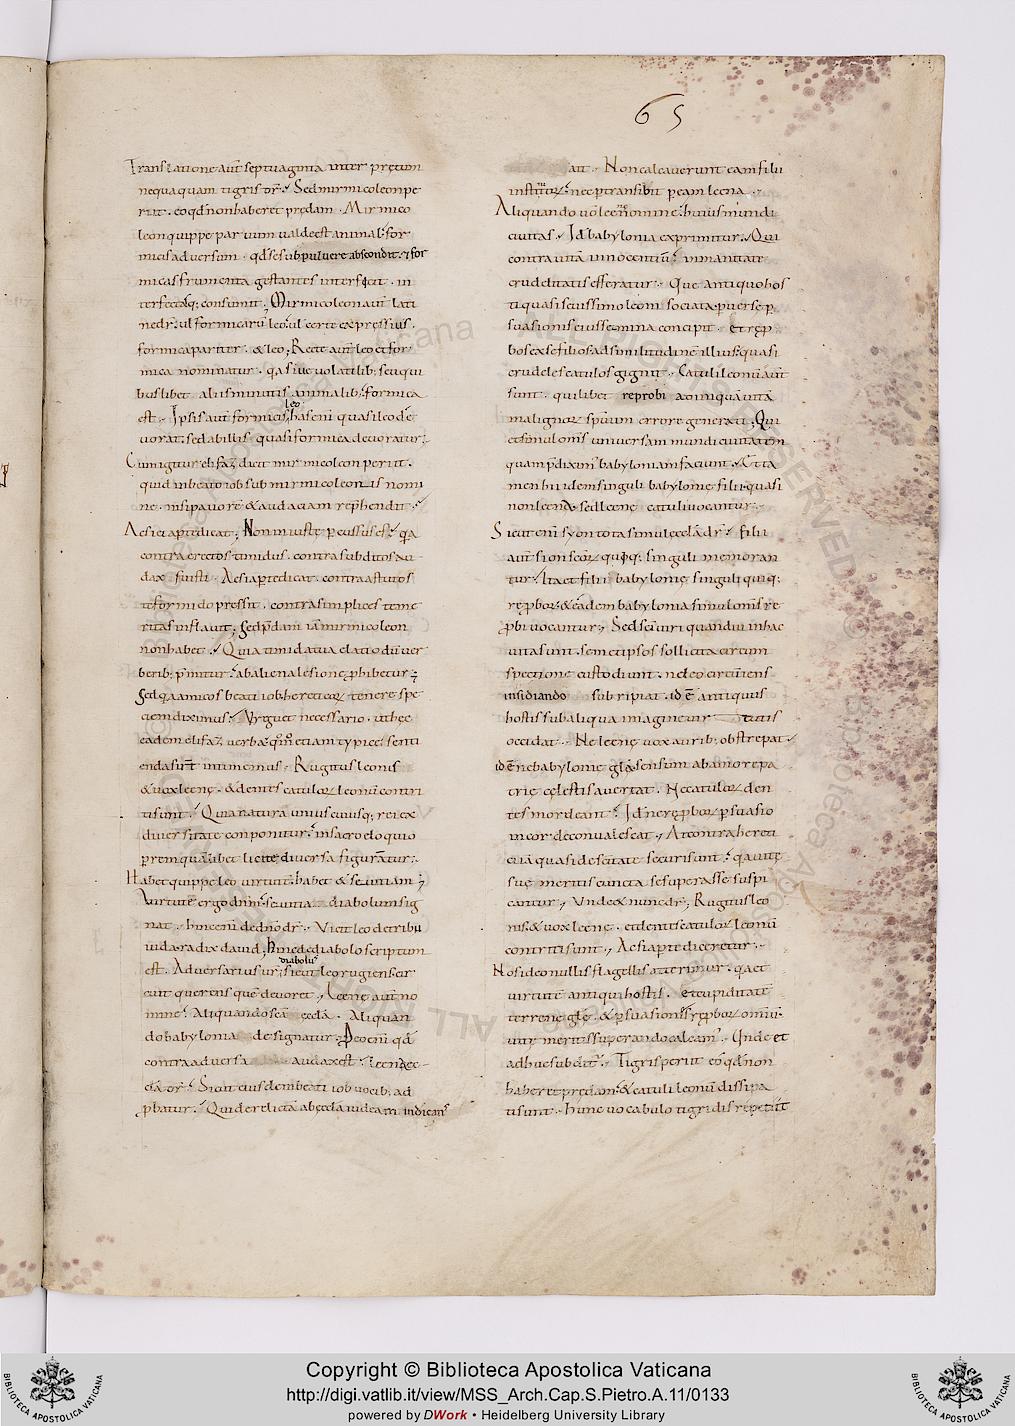 65
Translatione aut̄ septuaginta inter prętum
nequaquam tigris dr̄. Sed mirmicoleon pe
riit. eo qd̄ non haberet prędam. Mirmico
leon quippe parvum valde est animal. for
micis adversum. qd̄ se sub pulvere abscondit. & for
micas frumenta gestantes interficit. in
terfectasq; consumit. Mirmicoleon aut̄ lati
ne dr̄. ul formicarū leo. ul certe expressius.
formica pariter. & leo; Recte aut̄ leo et for
mica nominatur. qa sive volatilib; seu qui
buslibet aliis minutis animalib; formica
est. Ipsis aut̄ formicis leo
vorat. sed ab illis quasi formica devoratur;
Cum igitur elifaz dicit mirmicoleon periit.
quid in beato iob sub mirmicoleonis nomi
ne. nisi pavorē & audaciam rephendit.
Ac si ei apte dicat; Non iniuste percussus es. qa
contra erectos timidus. contra subditos au
dax fuisti. Ac si apte dicat. contra astutos
te formido pressit. contra simplices teme
ritas inflavit; Sed prędam iā mirmicoleon
non habet. Quia timida tua elatio dū ver
berib; premitur. ab aliena lesione phibetur;
Sed qa amicos beati iob hereticor tenere spe
ciem diximus. Urguet necessario. ut hęc
eadem elifaz verba. qm̄ etiam typice senti
enda sunt intimemus. Rugitus leonis
& vox leenę. & dentes catulor leonū contri
ti sunt. Quia natura unius cuiusq; rei ex
diversitate conponitur. in sacro eloquio
per rem quālibet licite diversa figurantur.
Habet quippe leo virtutē. habet & sevitiam;
Virtute ergo dnm̄. sevitia diabolum sig
nat. hinc eni de dn̄o dr̄. Vicit leo de tribu
iuda. radix david; hinc de diabolo scriptum
diabolus
est. Adversarius vr̄ sicut leo rugiens cir
cuit querens quē devoret; Leenę aut̄ no
mine. Aliquando scā ęccla. Aliquan
do babylonia designatur. Pro eo eni qd̄
contra adversa audax est. leena ęc
cla dr̄. Sicut eiusdem beati iob vocib; ad
pbatur. Qui derelictā ab ęccla iudeam indicans
ait. Non calcaverunt eam filii
institorū. nec ptransibit p eam leena.
Aliquando vō leenę nomine. huius mundi
civitas. Id babylonia exprimitur. Qui
contra vita innocentiū. inmanitate
crudelitatis efferatur. Que antiquo hos
ti quasi sevissimo leoni sociata. pverse p
suasionis eius semina concipit. Et rep
bos ex se filios ad similitudinē illius. quasi
crudeles catulos gignit. Catuli leonū aut̄
sunt. quilibet reprobi ad iniquā vitā
malignor spūum errore generati. Qui
et simul om̄s universam mundi civitatem
quam prediximus babyloniam faciunt. Et ta
men hi idem singuli babylonię filii. quasi
non leenę. sed leenę catuli vocantur.
Sicut eni syon tota simul ęccla dr̄. filii
aut̄ sion scor quiq; singuli memoran
tur. Ita et filii babylonię singuli quiq;
repbor. & eadem babylonia simul om̄s re
pbi vocantur; Sed scī viri quandiu in hac
vita sunt. semetipsos sollicita circum
spectione custodiunt. ne leo circūiens
insidiando subripiat. id ē antiquus
hostis sub aliqua imagine virtutis
occidat. Ne leenę vox aurib; obstrepat.
id ē ne babylonię glā sensum ab amore pa
trię cęlestis avertat. Ne catulor den
tes mordeant. Id ne repbor psuasio
in corde convalescat; At contra hereti
ci iā quasi de scitate securi sunt. qa vitę
suę meritis cuncta se superasse suspi
cantur; Unde & nunc dr̄; Rugitus leo
nis. & vox leenę. et dentes catulor leonū
contriti sunt; Ac si apte diceretur.
Nos ideo nullis flagellis atterimur. qa et
virtutē antiqui hostis. et cupiditatē
terrenę glę. & psuasionis repbor omniū.
vitę meritis superando calcam̄. Unde et
adhuc subdit̄. Tigris periit eo qd̄ non
haberet prędam. & catuli leonū dissipa
ti sunt. hunc vocabulo tigridis repetiit
Copyright © Biblioteca Apostolica Vaticana
http://digi.vatlib.it/view/MSS_Arch.Cap.S.Pietro.A.11/0133
powered by DWork • Heidelberg University Library